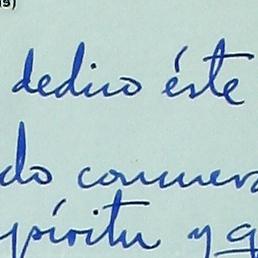 dedico éste
do conmer
píritu y q